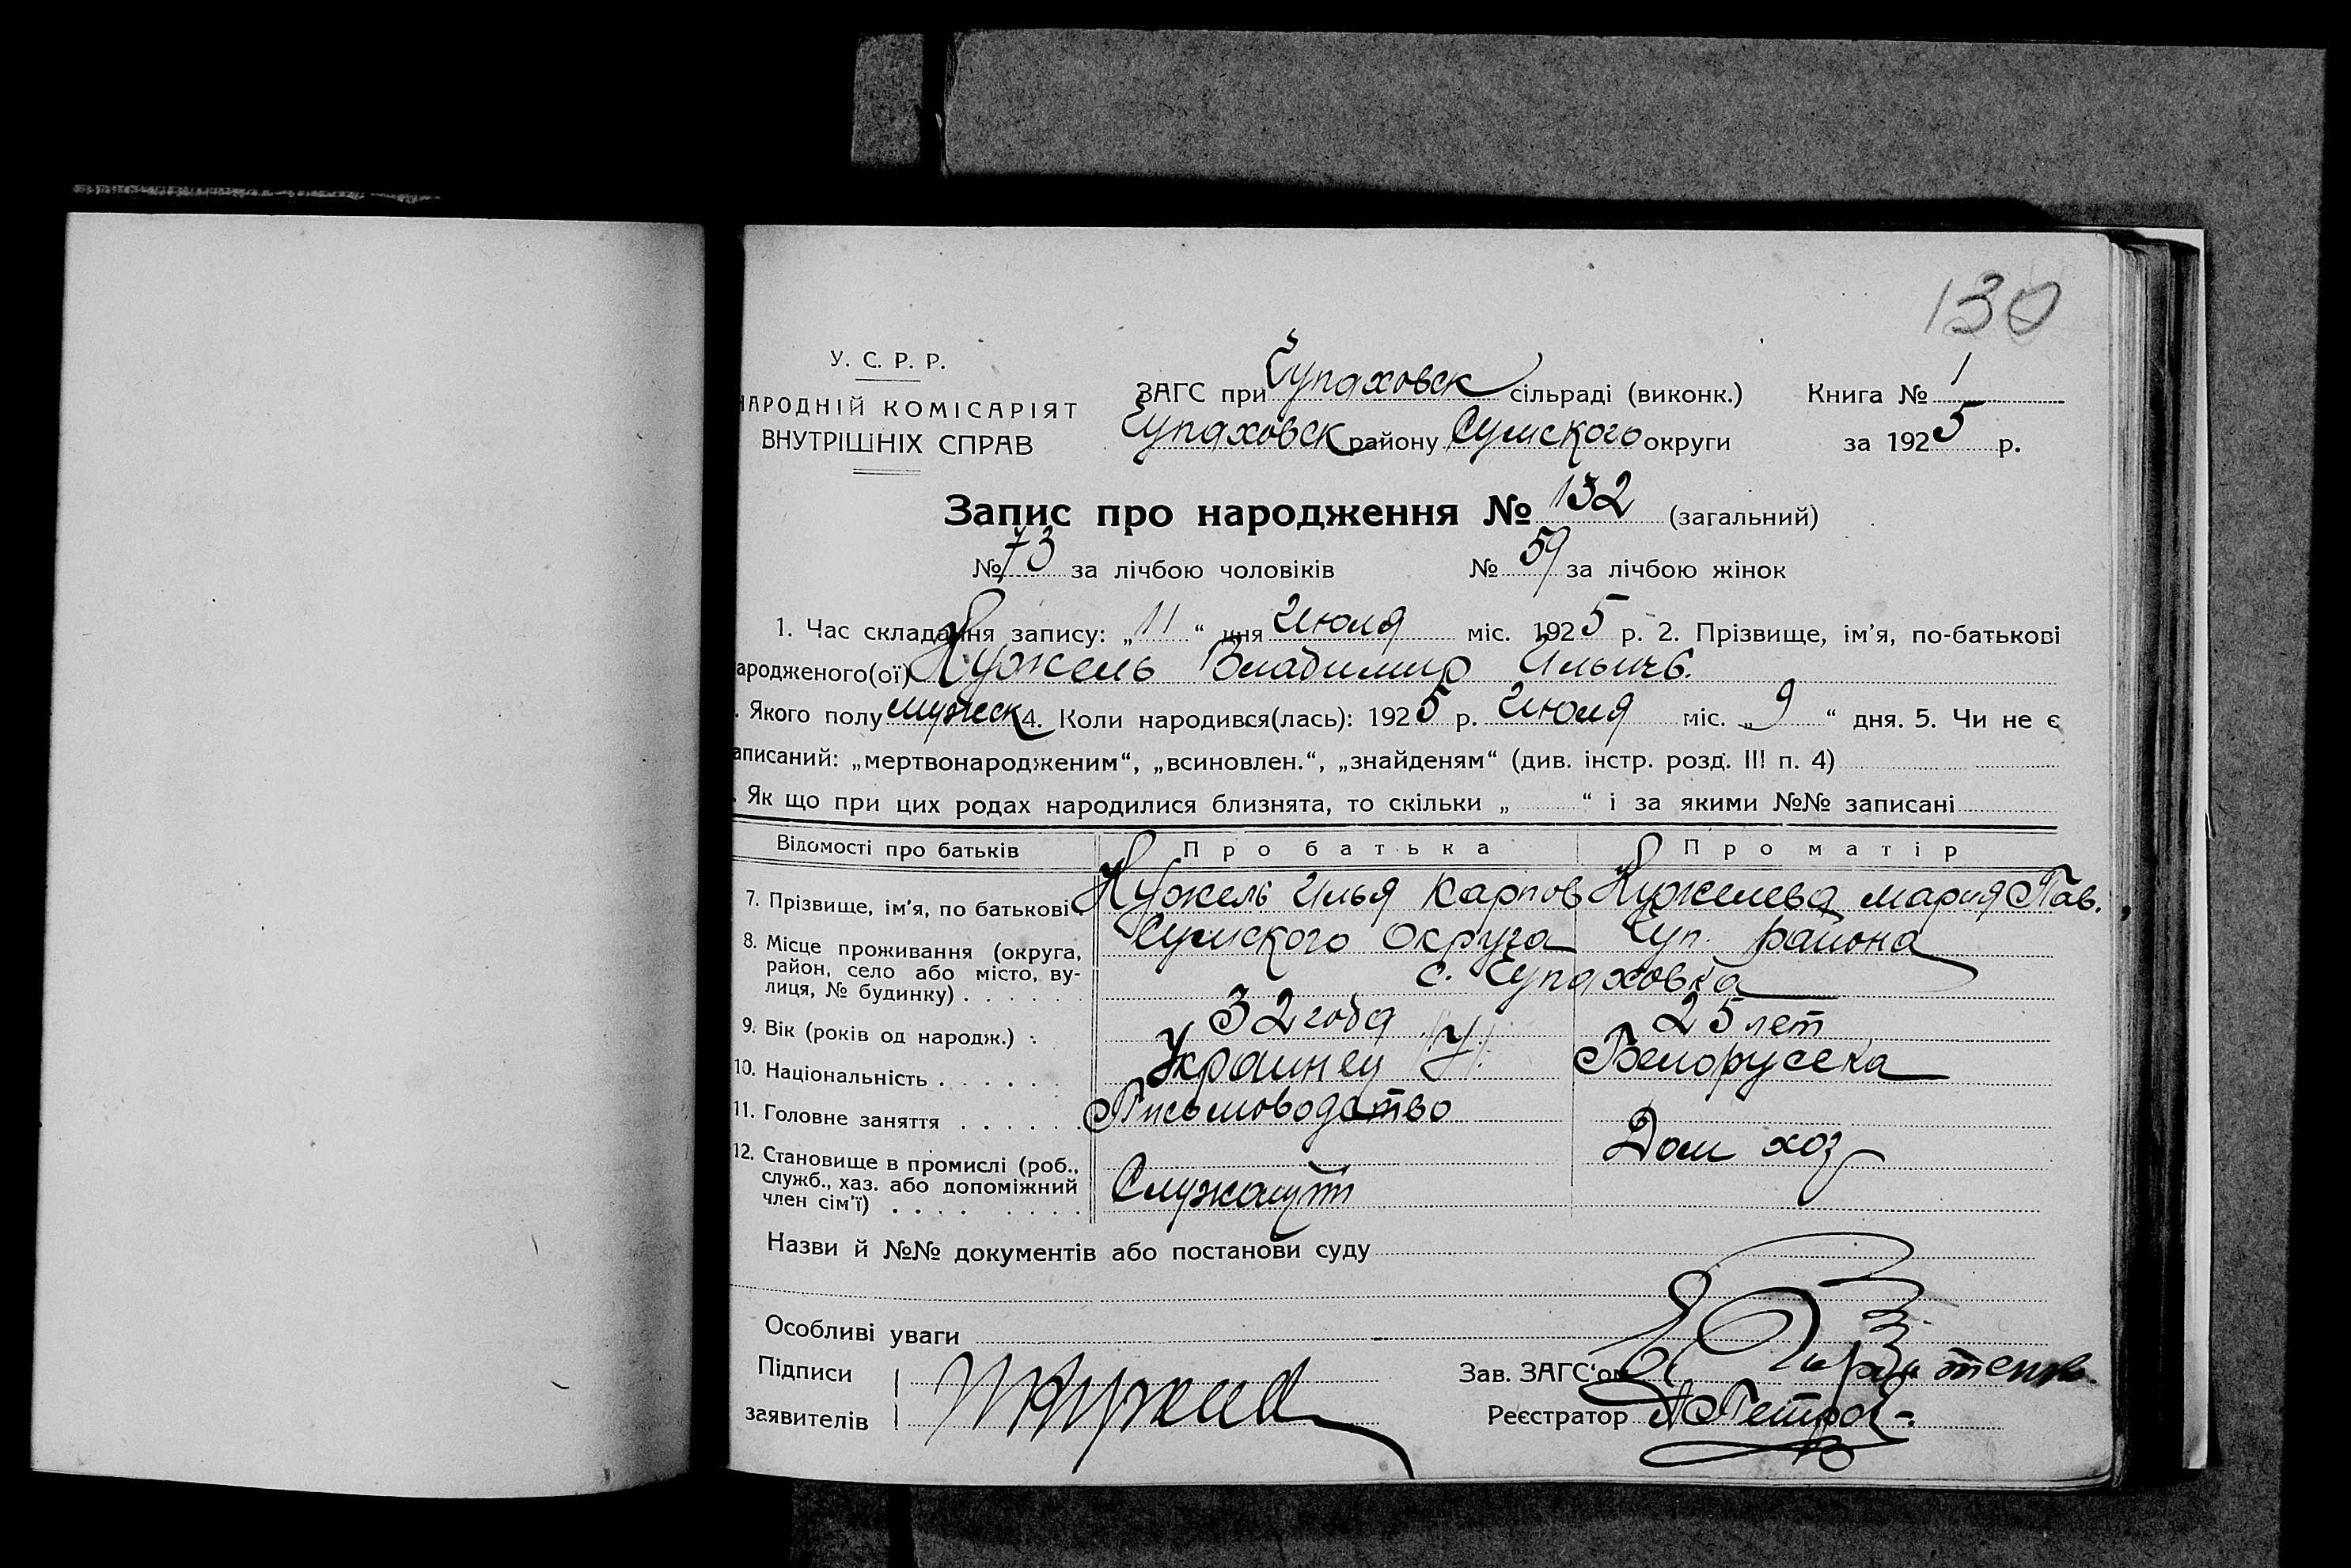 130
У. С. Р. Р.
НАРОДНІЙ КОМІСАРІЯТ
ВНУТРІШНІХ СПРАВ
ЗАГС при Чупаховск сільраді (виконк.) Книга № 1
Чупаховск району Сумского округи за 1925 р.
Запис про народження № 132 (загальний)
№ 73 за лічбою чоловіків № 59 за лічбою жінок
1. Час складання запису: „11“ дня Июля міс. 1925 р. 2. Прізвище, ім’я, по-батькові
ародженого(ої) Кужель Владимир Ильич.
. Якого полу мужск 4. Коли народився(лась): 1925 р. Июля міс. „9“ дня. 5. Чи не є
аписаний: „мертвонародженим“, „всиновлен.“, „знайденям“ (див. інстр. розд. III п. 4)
. Як що при цих родах народилися близнята, то скільки „ “ і за якими №№ записані
Відомості про батьків Про батька Про матір
7. Прізвище, ім’я, по батькові Кужель Илья Карпов Кужелева Мария Пав.
8. Місце проживання (округа, район, село або місто, ву-лиця, № будинку) Сумского Округа Чуп. района
с. Чупаховка
9. Вік (років од народж.) 32 года 25 лет
10. Національність Украинец У. Белорусска
11. Головне заняття Письмоводство
12. Становище в промислі (роб., служб., хаз. або допоміжний член сім’ї) Служащий Дом хоз
Назви й №№ документів або постанови суду
Особливі уваги
Підписи
заявителів
Зав. ЗАГС‘ом
Реєстратор А Петров